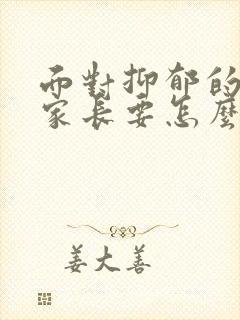 而對抑郁的
家長要怎麼
姜大善